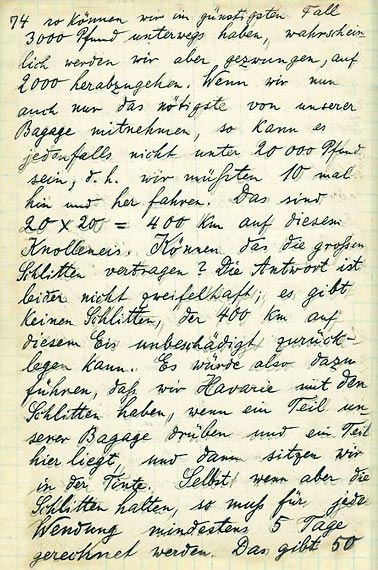 74 so können wir im günstigsten Fall
3000 Pfund unterwegs haben, wahrschein
lich werden wir aber gezwungen, auf
2000 herabzugehen. Wenn wir nun
auch nur das nötigste von unserer
Bagage mitnehmen, so kann es
jedenfalls nicht unter 20 000 Pfund
sein, d.h. wir müßten 10 mal
hin und her fahren. Das sind
20 x 20 = 400 km auf diesem
Knolleneis. Können das die großen
Schlitten vertragen? Die Antwort ist
leider nicht zweifelhaft; es gibt
keinen Schlitten, der 400 km auf
diesem Eis unbeschädigt zurück-
legen kann. Es würde also dazu
führen, daß wir Havarie mit den
Schlitten haben, wenn ein Teil un-
serer Bagage drüben und ein Teil
hier liegt, und dann sitzen wir
in der Tinte. Selbst wenn aber die
Schlitten halten, so muß für jede
Wendung mindestens 5 Tage
gerechnet werden. Das gibt 50